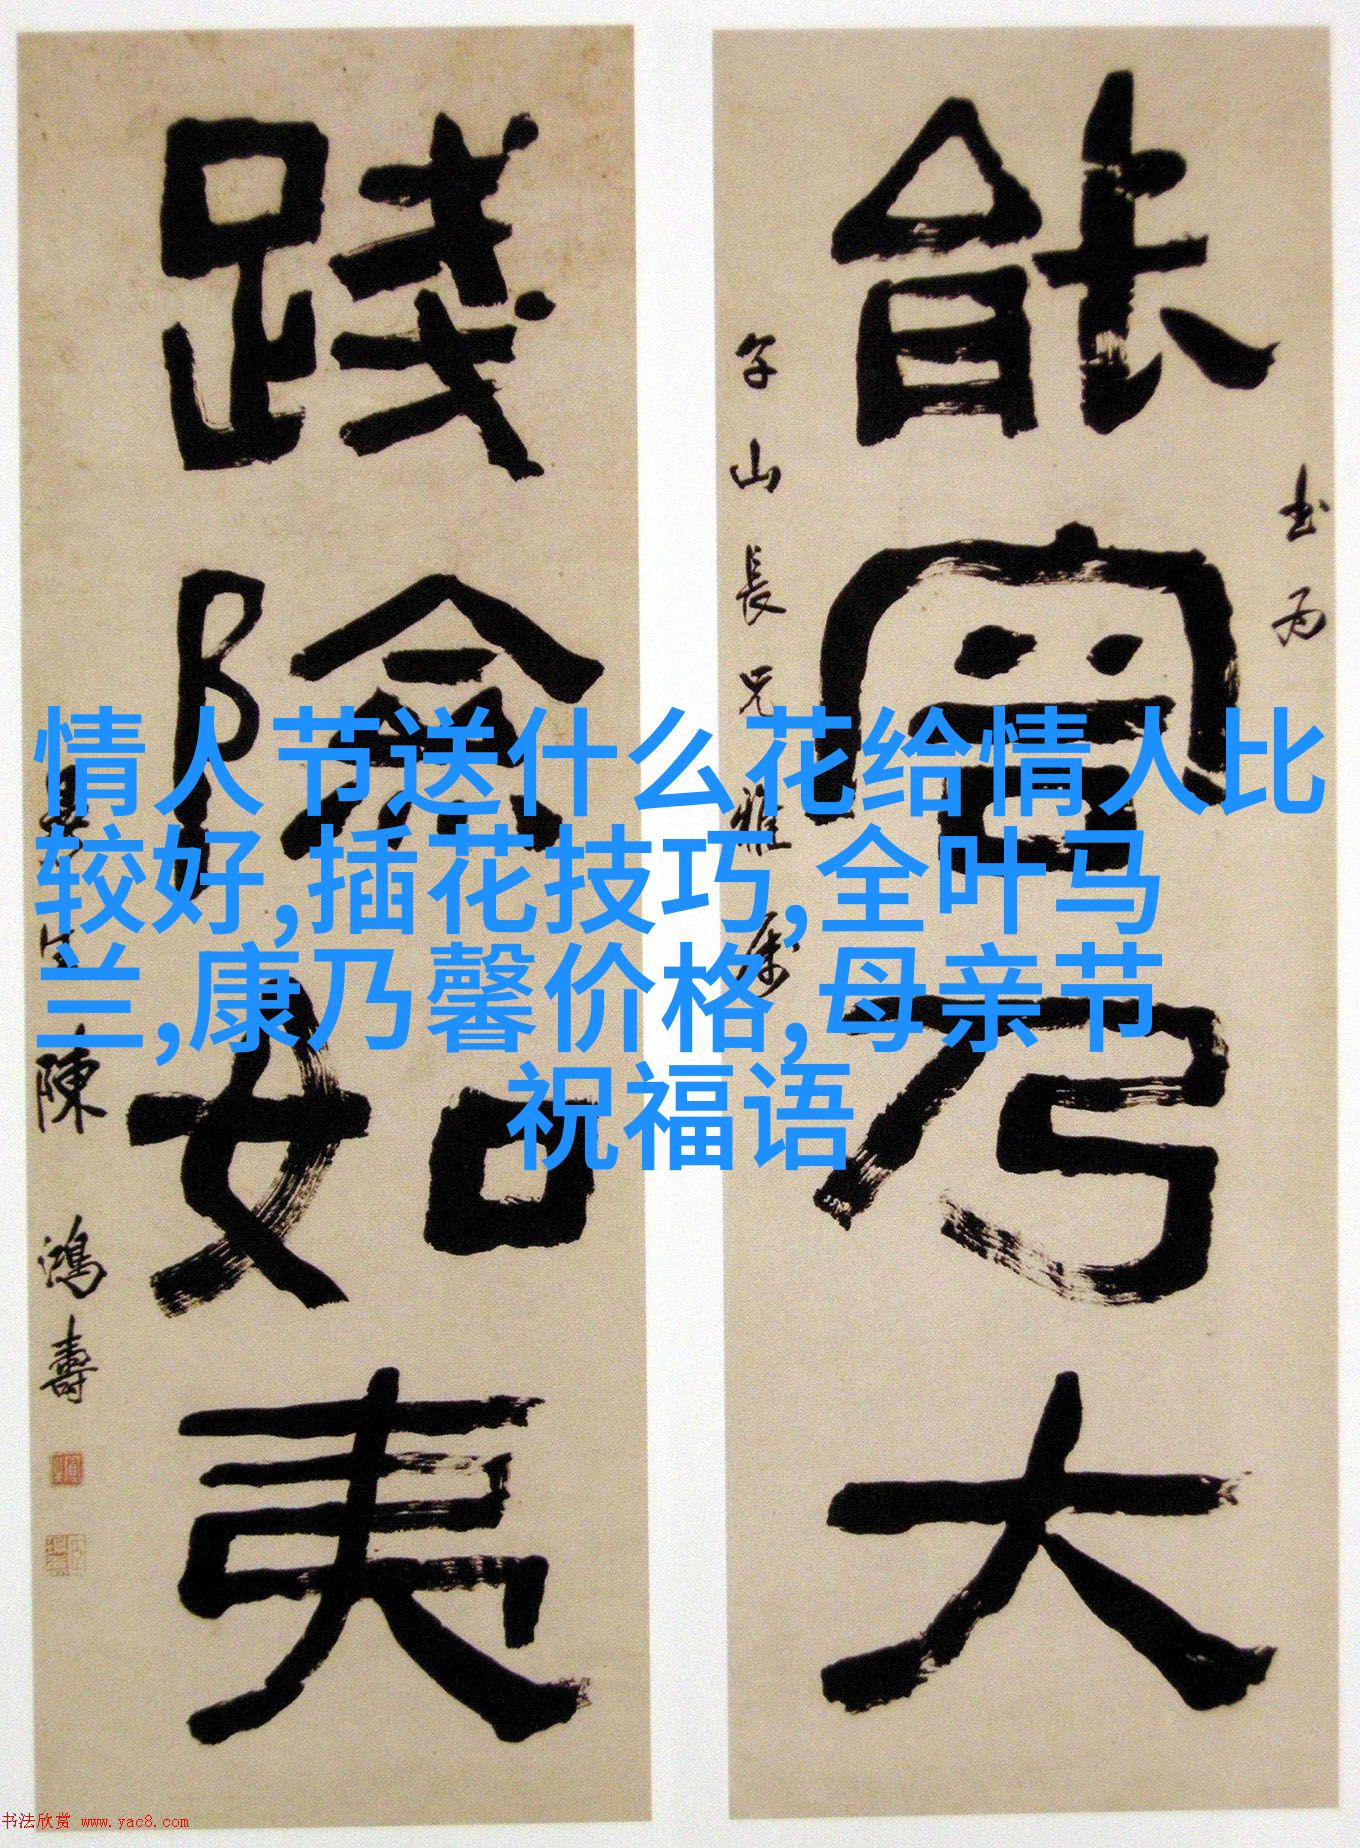 能容乃大
山長兄雅
踐險如夷
曼生陳鴻壽
情人节送什么花给情人比
较好,插花技巧,全叶马
兰,康乃馨价格,母亲节
祝福语
书法欣赏 www.yac8.com